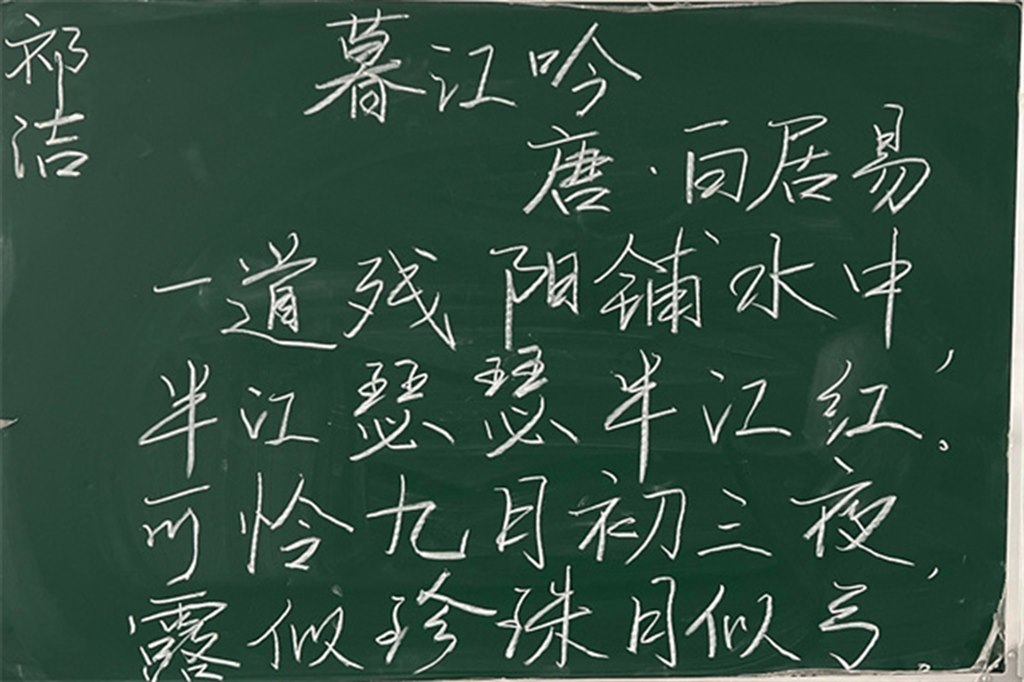 祁洁
暮江吟
唐·白居易
一道残阳铺水中,
半江瑟瑟半江红。
可怜九月初三夜,
露似珍珠月似弓。